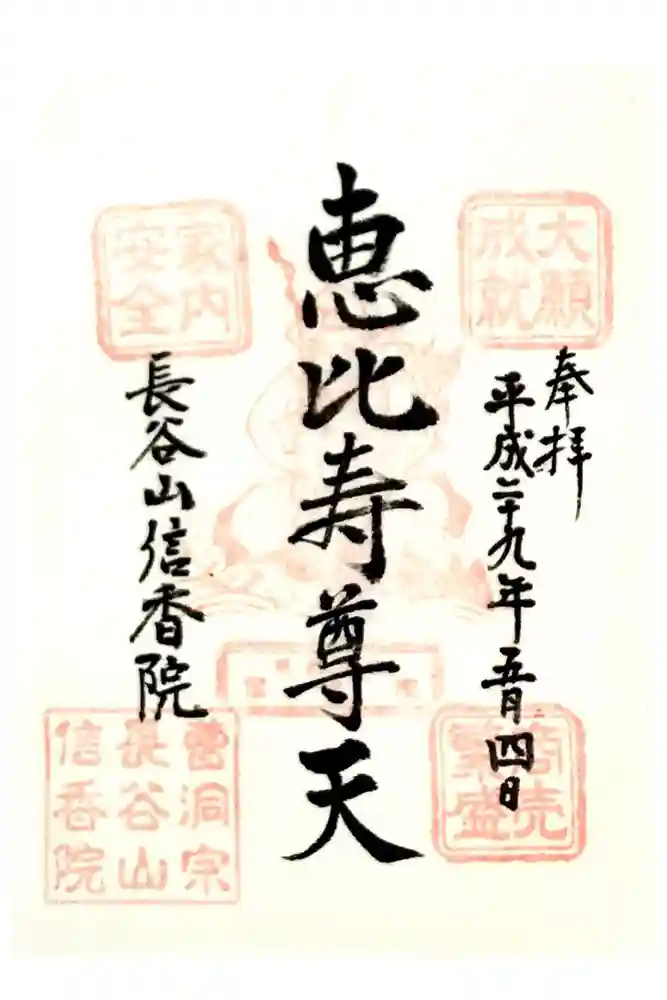 奉拝
平成二十九年五月四日
恵比寿尊天
長谷山信香院
大願
成就
家内
安全
商売
繁盛
曹洞宗
長谷山
信香院